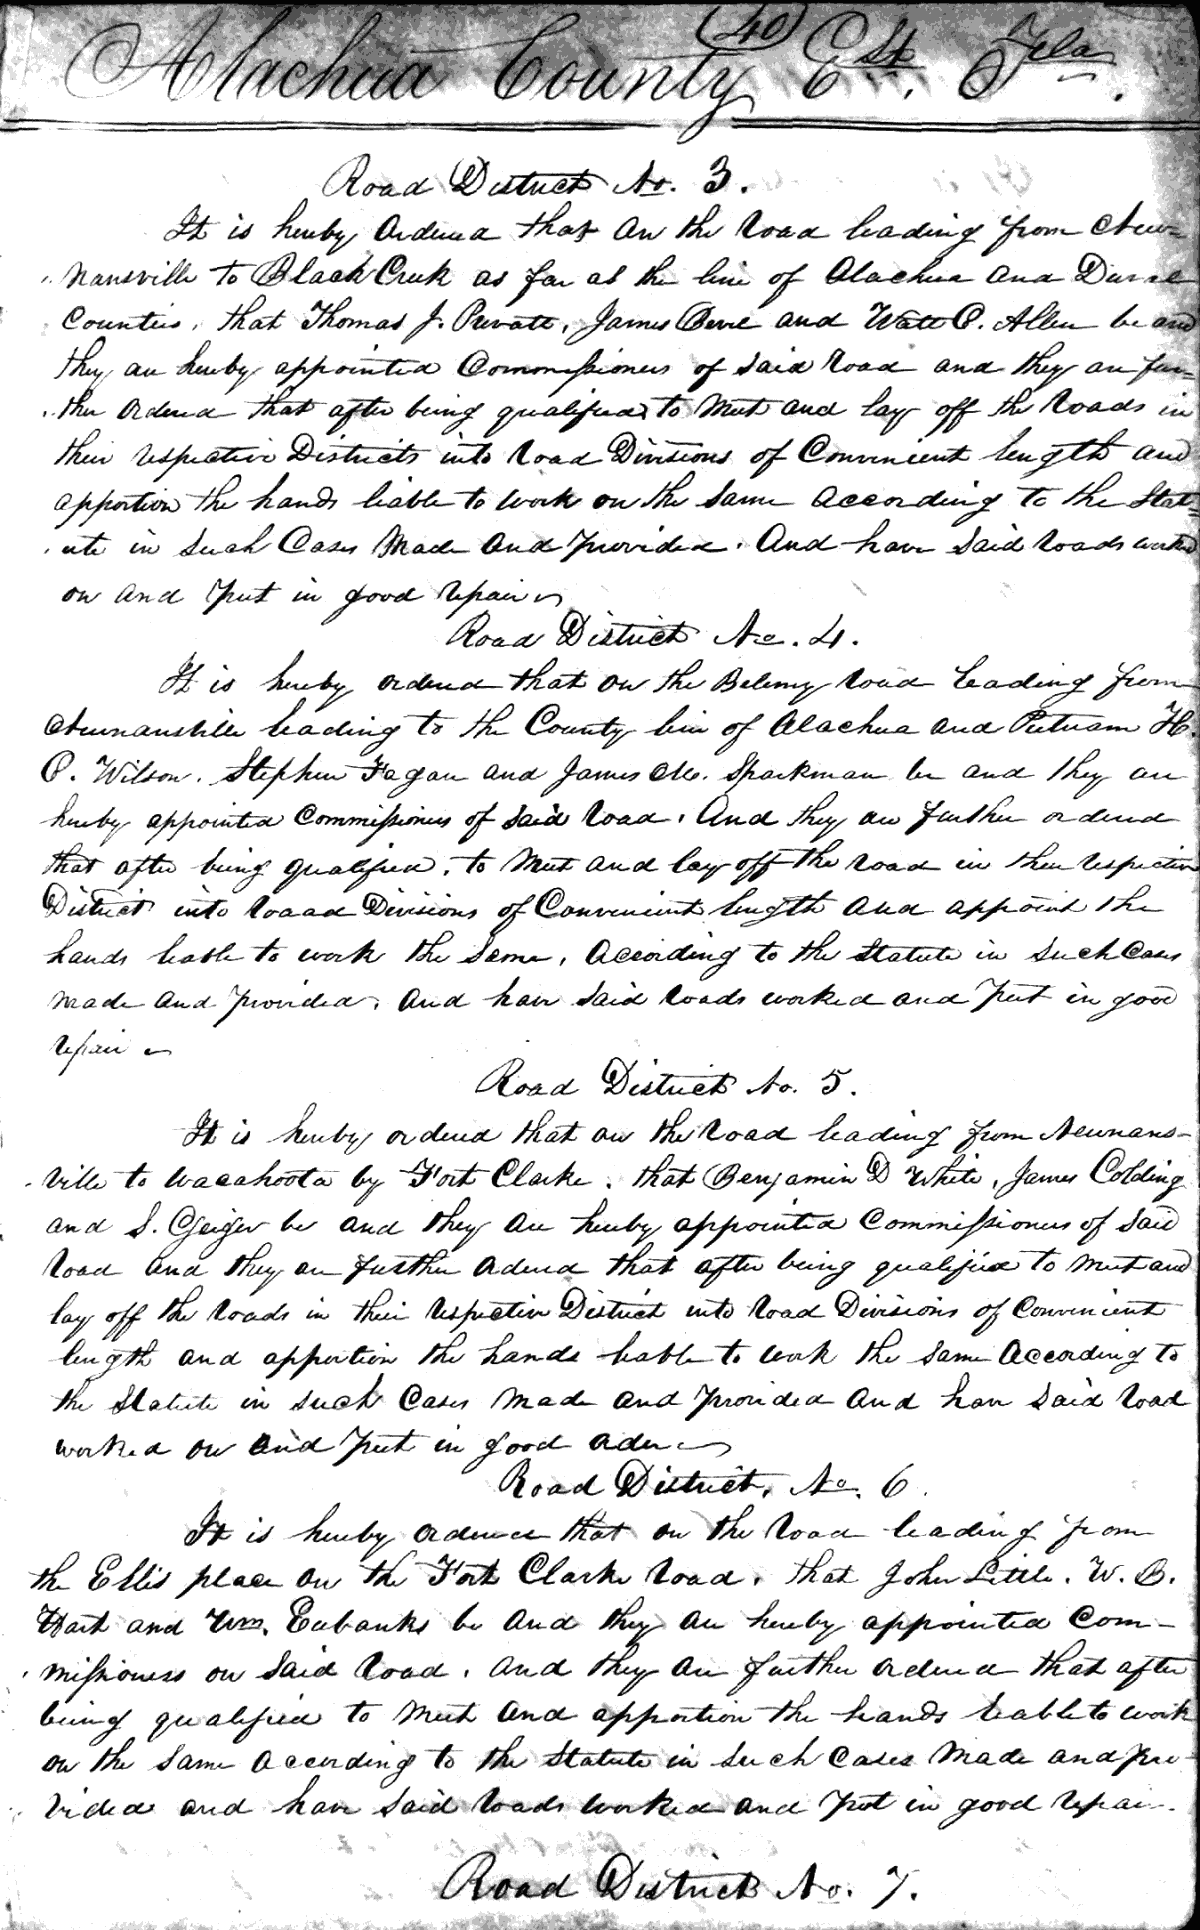 (40)
Alachua County Est. Fla.
Road District No. 3.
It is hereby ordered that on the road leading from New-
nansville to Black Creek as far as the line of Alachua and Duval
Counties, that Thomas J. Prevatt, James and Watt P. Allen be and
they are hereby appointed Commissioners of said road and they are fur-
ther ordered that after being qualified to meet and lay off the roads in
their respective Districts into road Divisions of Convenient length and
apportion the hands liable to work on the same according to the Stat-
ute in such Cases made and provided. And have said roads worked
on and put in good repair
Road District No. 4.
It is hereby ordered that on the Belemy road leading from
Newnansville leading to the County line of Alachua and Putnam H.
P. Wilson, Stephen Fagan and James M. Sparkman be and they are
hereby appointed Commissioners of said road. And they are further ordered
that after being qualified, to meet and lay off the road in their respective
District into roaad Divisions of Convenient length and appoint the
hands leable to work the same, according to the Statute in such Cases
made and provided, and have said roads worked and put in good
repair
Road District No. 5.
It is hereby ordered that on the road leading from Newnans-
ville to Wacahoota by Fort Clarke, that Benjamin D White, James Colding
and S. Geiger be and they are hereby appointed Commissioners of said
road and they are further ordered that after being qualified to meet and
lay off the roads in their respective District into road Divisions of Convenient
length and apportion the hands leable to work the same according to
the Statute in such Cases made and provided and have said road
worked on and put in good order
Road District, No. 6.
It is hereby ordered that on the road leading from
the Ellis place on the Fort Clarke road, that John Little, W. B.
Hart and Wm. Eubanks be and they are hereby appointed Com-
missioners on said road, and they are further ordered that after
being qualified to meet and apportion the hands leable to work
on the same according to the Statute in such Cases made and pro-
vided and have said roads worked and put in good repair.
Road District No. 7.